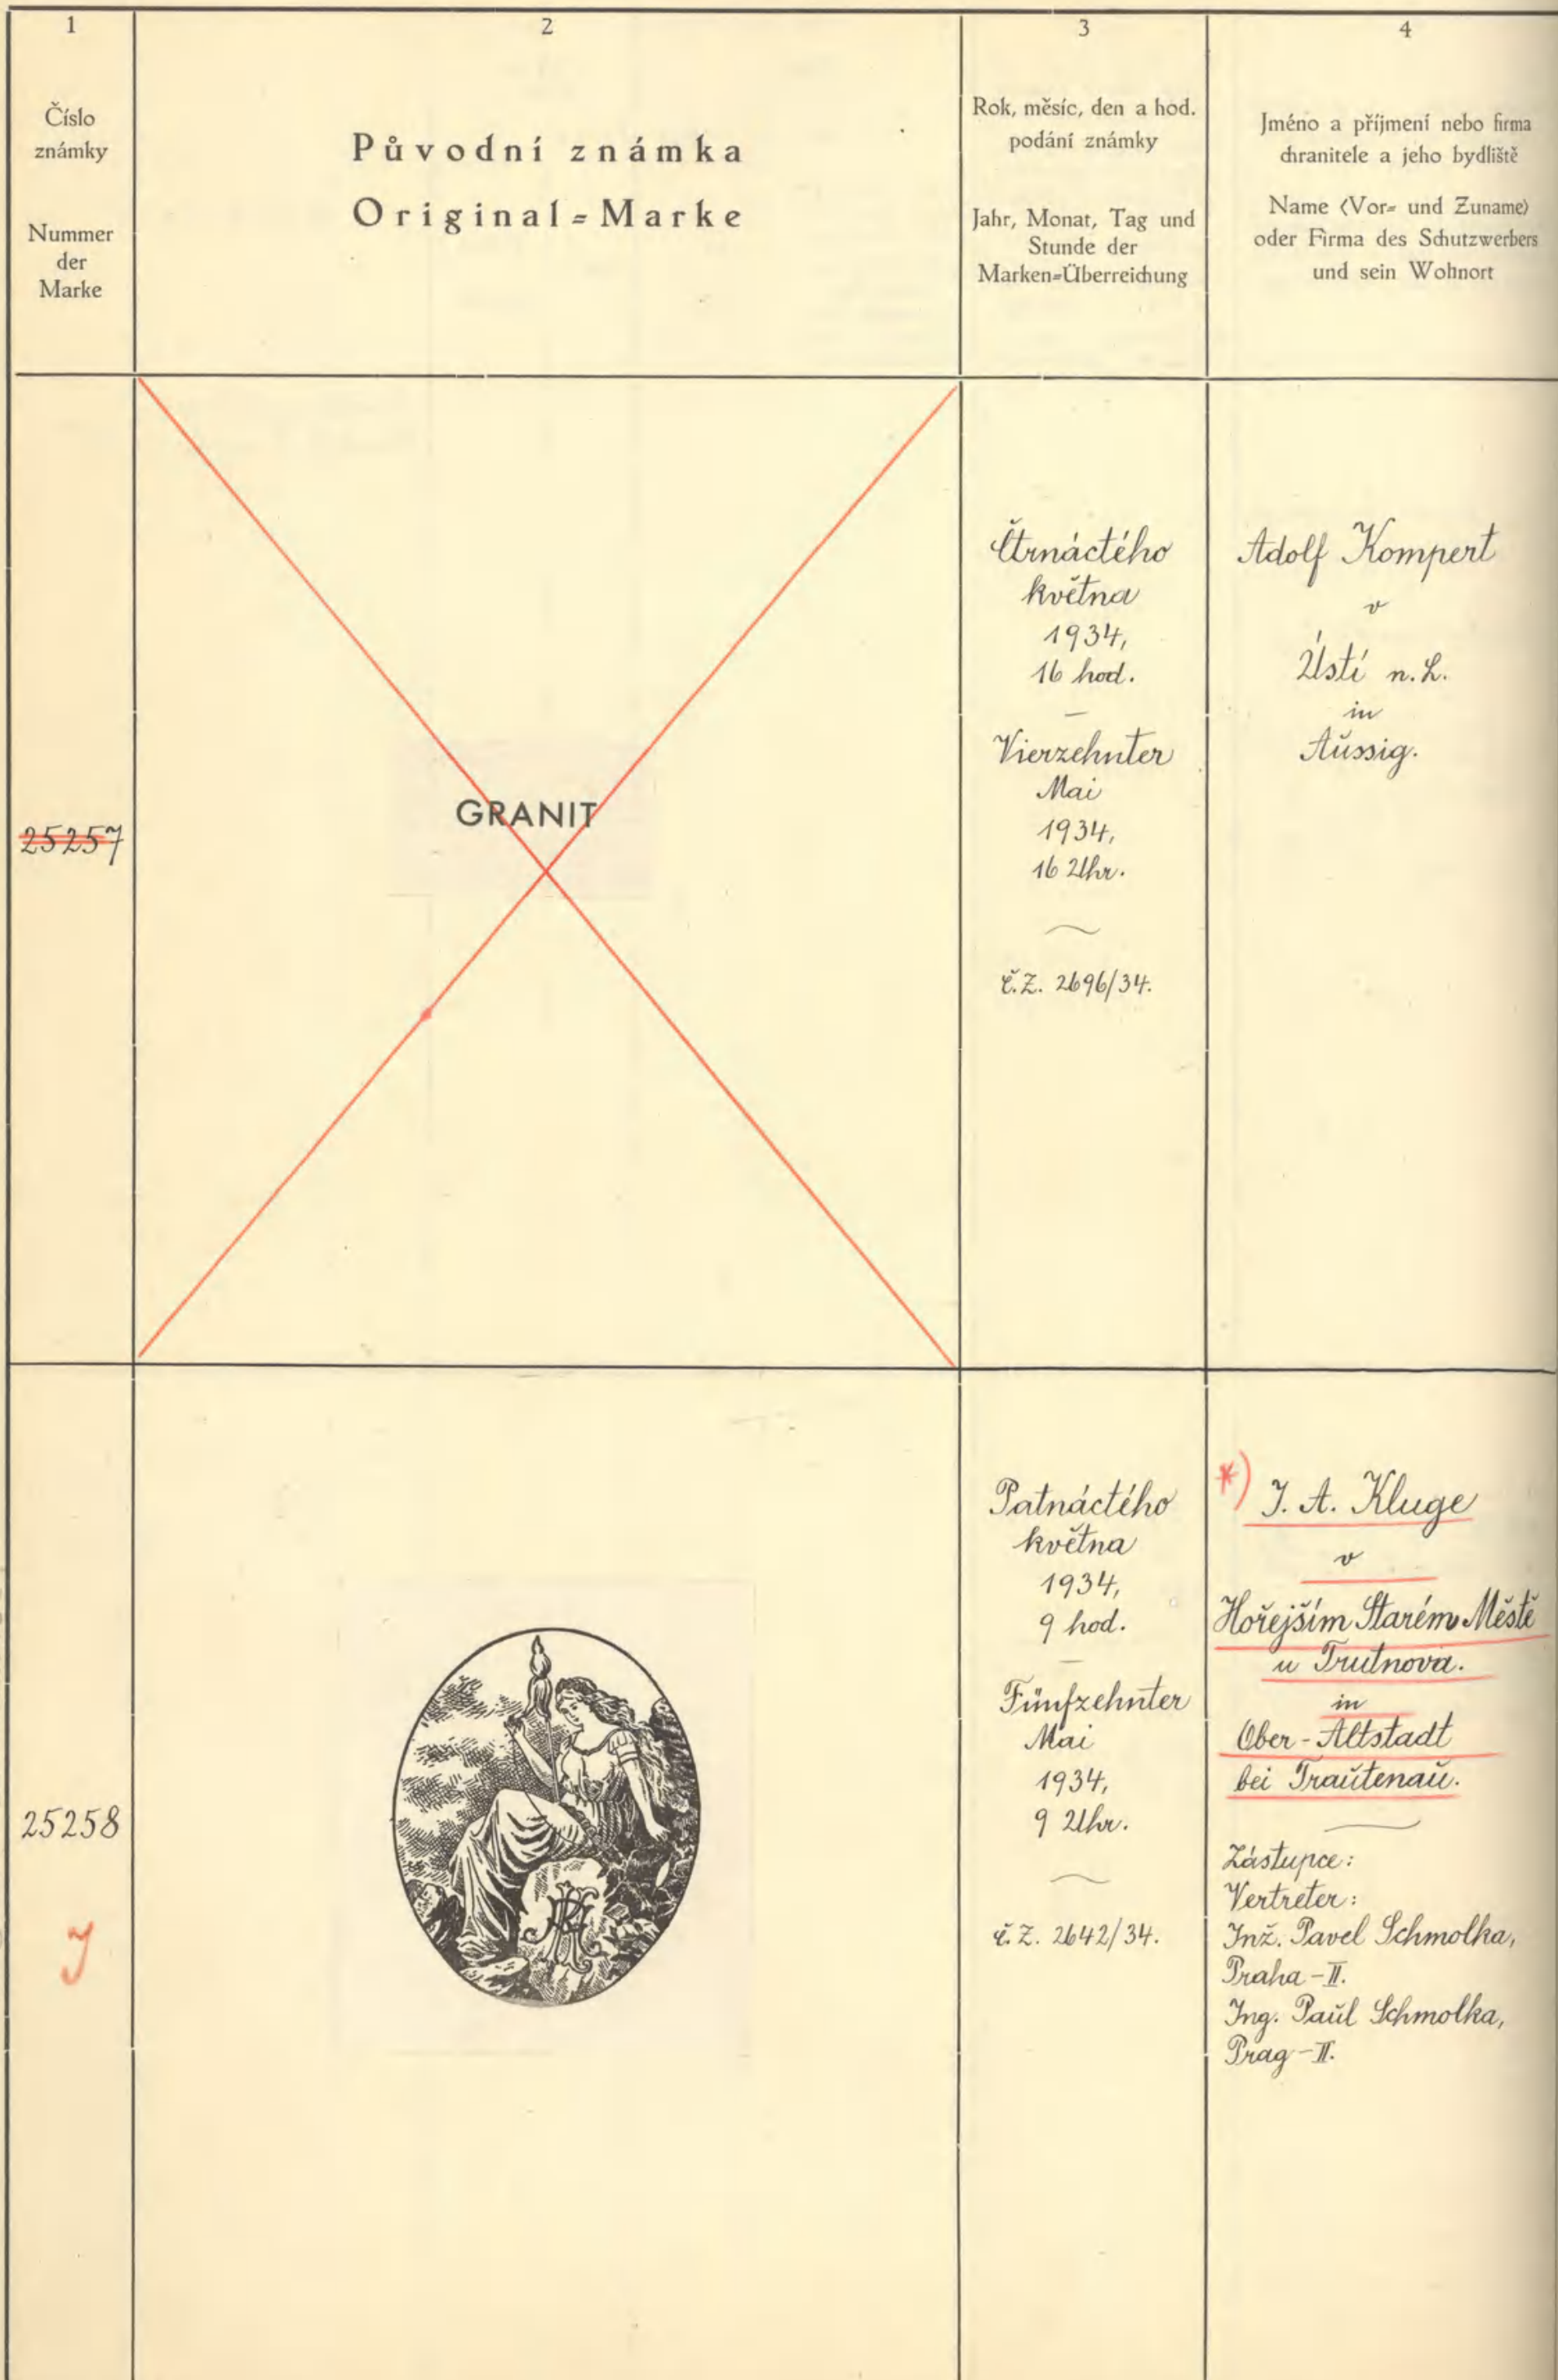 1
Číslo
známky
Nummer
der
Marke
2
Původní známka
Original=Marke
3
Rok, měsíc, den a hod.
podání známky
Jahr, Monat, Tag und
Stunde der
Marken=Überreichung
4
Jméno a příjmení nebo firma
chranitele a jeho bydliště
Name (Vor= und Zuname)
oder Firma des Schutzwerbers
und sein Wohnort
25257
GRANIT
Čtrnáctého
května
1934,
16 hod.
Vierzehnter
Mai
1934,
16 Uhr.
č.Z. 2696/34.
Adolf Kompert
v
Ústí n.L.
in
Aŭssig.
25258
J
Patnáctého
května
1934,
9 hod.
Fünfzehnter
Mai
1934,
9 Uhr.
č.Z. 2642/34.
*) J. A. Kluge
v
Hořejším Starém Městě
u Trutnova.
in
Ober-Altstadt
bei Traŭtenaŭ.
Zástupce:
Vertreter:
Inž. Pavel Schmolka,
Praha-II.
Ing. Paŭl Schmolka,
Prag-II.